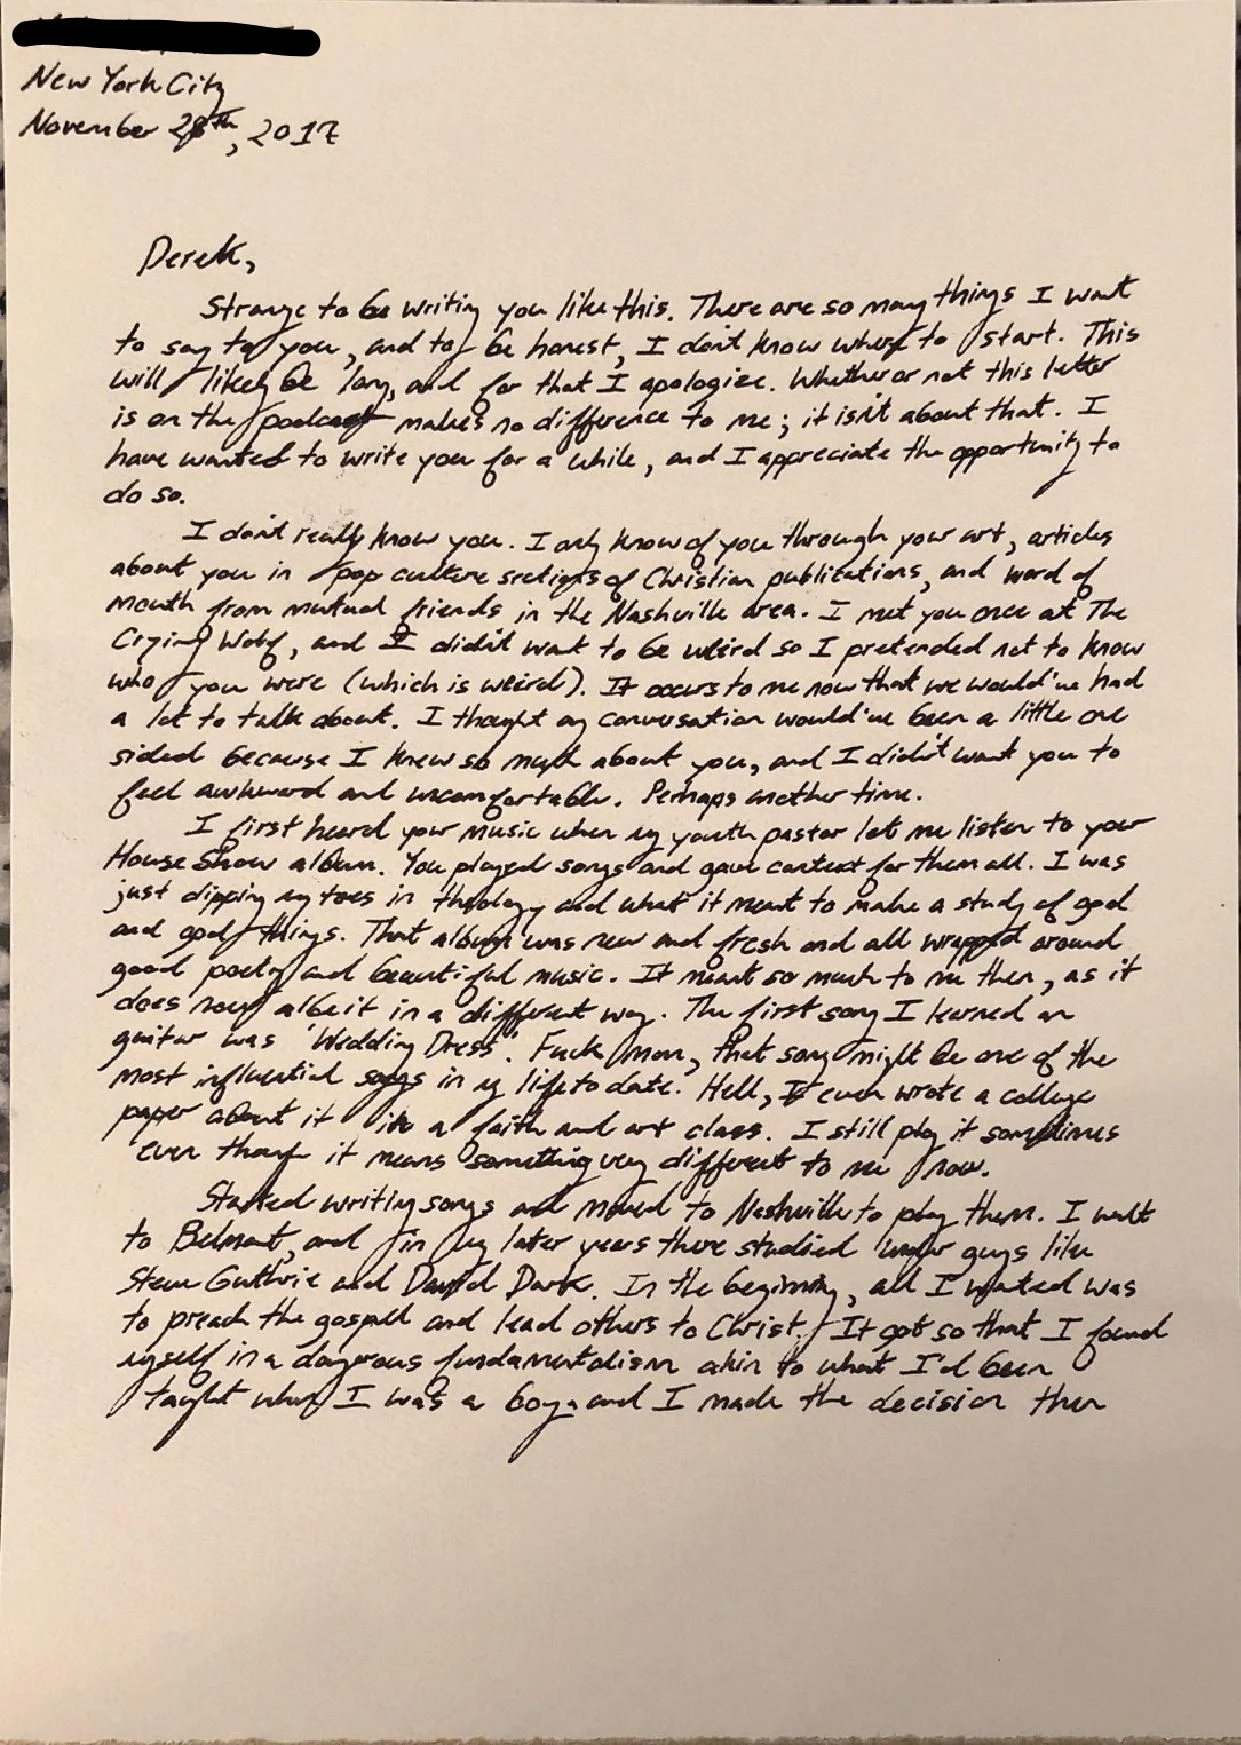 New York City
November 28th, 2017
Derek,
Strange to be writing you like this. There are so many things I want
to say to you, and to be honest, I don't know where to start. This
will likely be long, and for that I apologize. Whether or not this letter
is on the podcast makes no difference to me; it isn't about that. I
have wanted to write you for a while, and I appreciate the opportunity to
do so.
I don't really know you. I only know of you through your art, articles
about you in pop culture sections of Christian publications, and word of
mouth from mutual friends in the Nashville area. I met you once at The
Crying Wolf, and I didn't want to be weird so I pretended not to know
who you were (which is weird). It occurs to me now that we would've had
a lot to talk about. I thought my conversation would've been a little one
sided because I knew so much about you, and I didn't want you to
feel awkward and uncomfortable. Perhaps another time.
I first heard your music when my youth pastor let me listen to your
House Show album. You played songs and gave context for them all. I was
just dipping my toes in theology and what it meant to make a study of god
and godly things. That album was new and fresh and all wrapped around
good poetry and beautiful music. It meant so much to me then, as it
does now albeit in a different way. The first song I learned on
guitar was 'Wedding Dress'. Fuck man, that song might be one of the
most influential songs in my life to date. Hell, I even wrote a college
paper about it in a faith and art class. I still play it sometimes
even though it means something very different to me now.
Started writing songs and moved to Nashville to play them. I went
to Belmont, and in my later years there studied under guys like
Steve Guthrie and David Dark. In the beginning, all I wanted was
to preach the gospel and lead others to Christ. It got so that I found
myself in a dangerous fundamentalism akin to what I'd been
taught when I was a boy, and I made the decision then